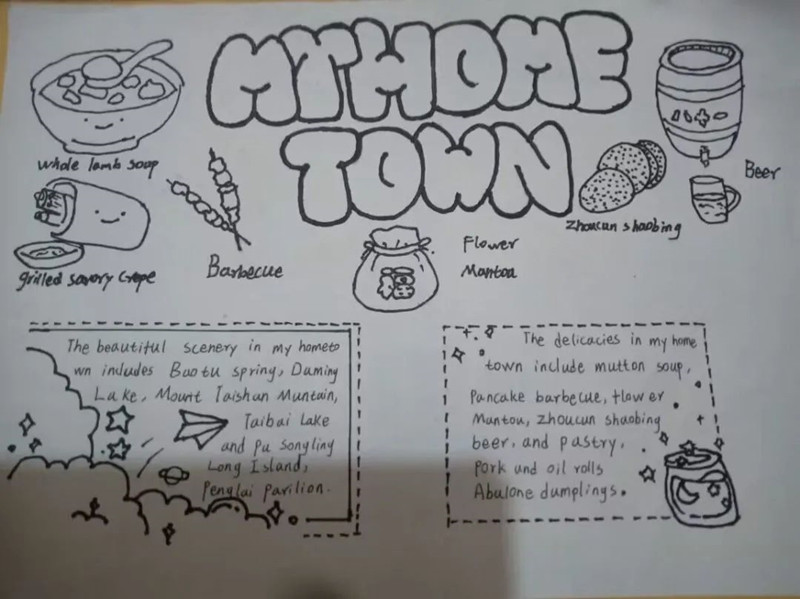 MY HOME
TOWN
whole lamb soup
grilled savory Crepe
Barbecue
Flower
Mantou
zhoucun shaobing
Beer
The beautiful scenery in my hometo
wn includes Baotu spring, Daming
Lake, Mount Taishan Muntain,
Taibai Lake
and Pu Songling
Long Island,
Penglai Pavilion.
The delicacies in my home
town include mutton soup,
Pancake barbecue, flower
Mantou, zhoucun shaobing
beer, and pastry,
Pork and oil rolls
Abulone dumplings.